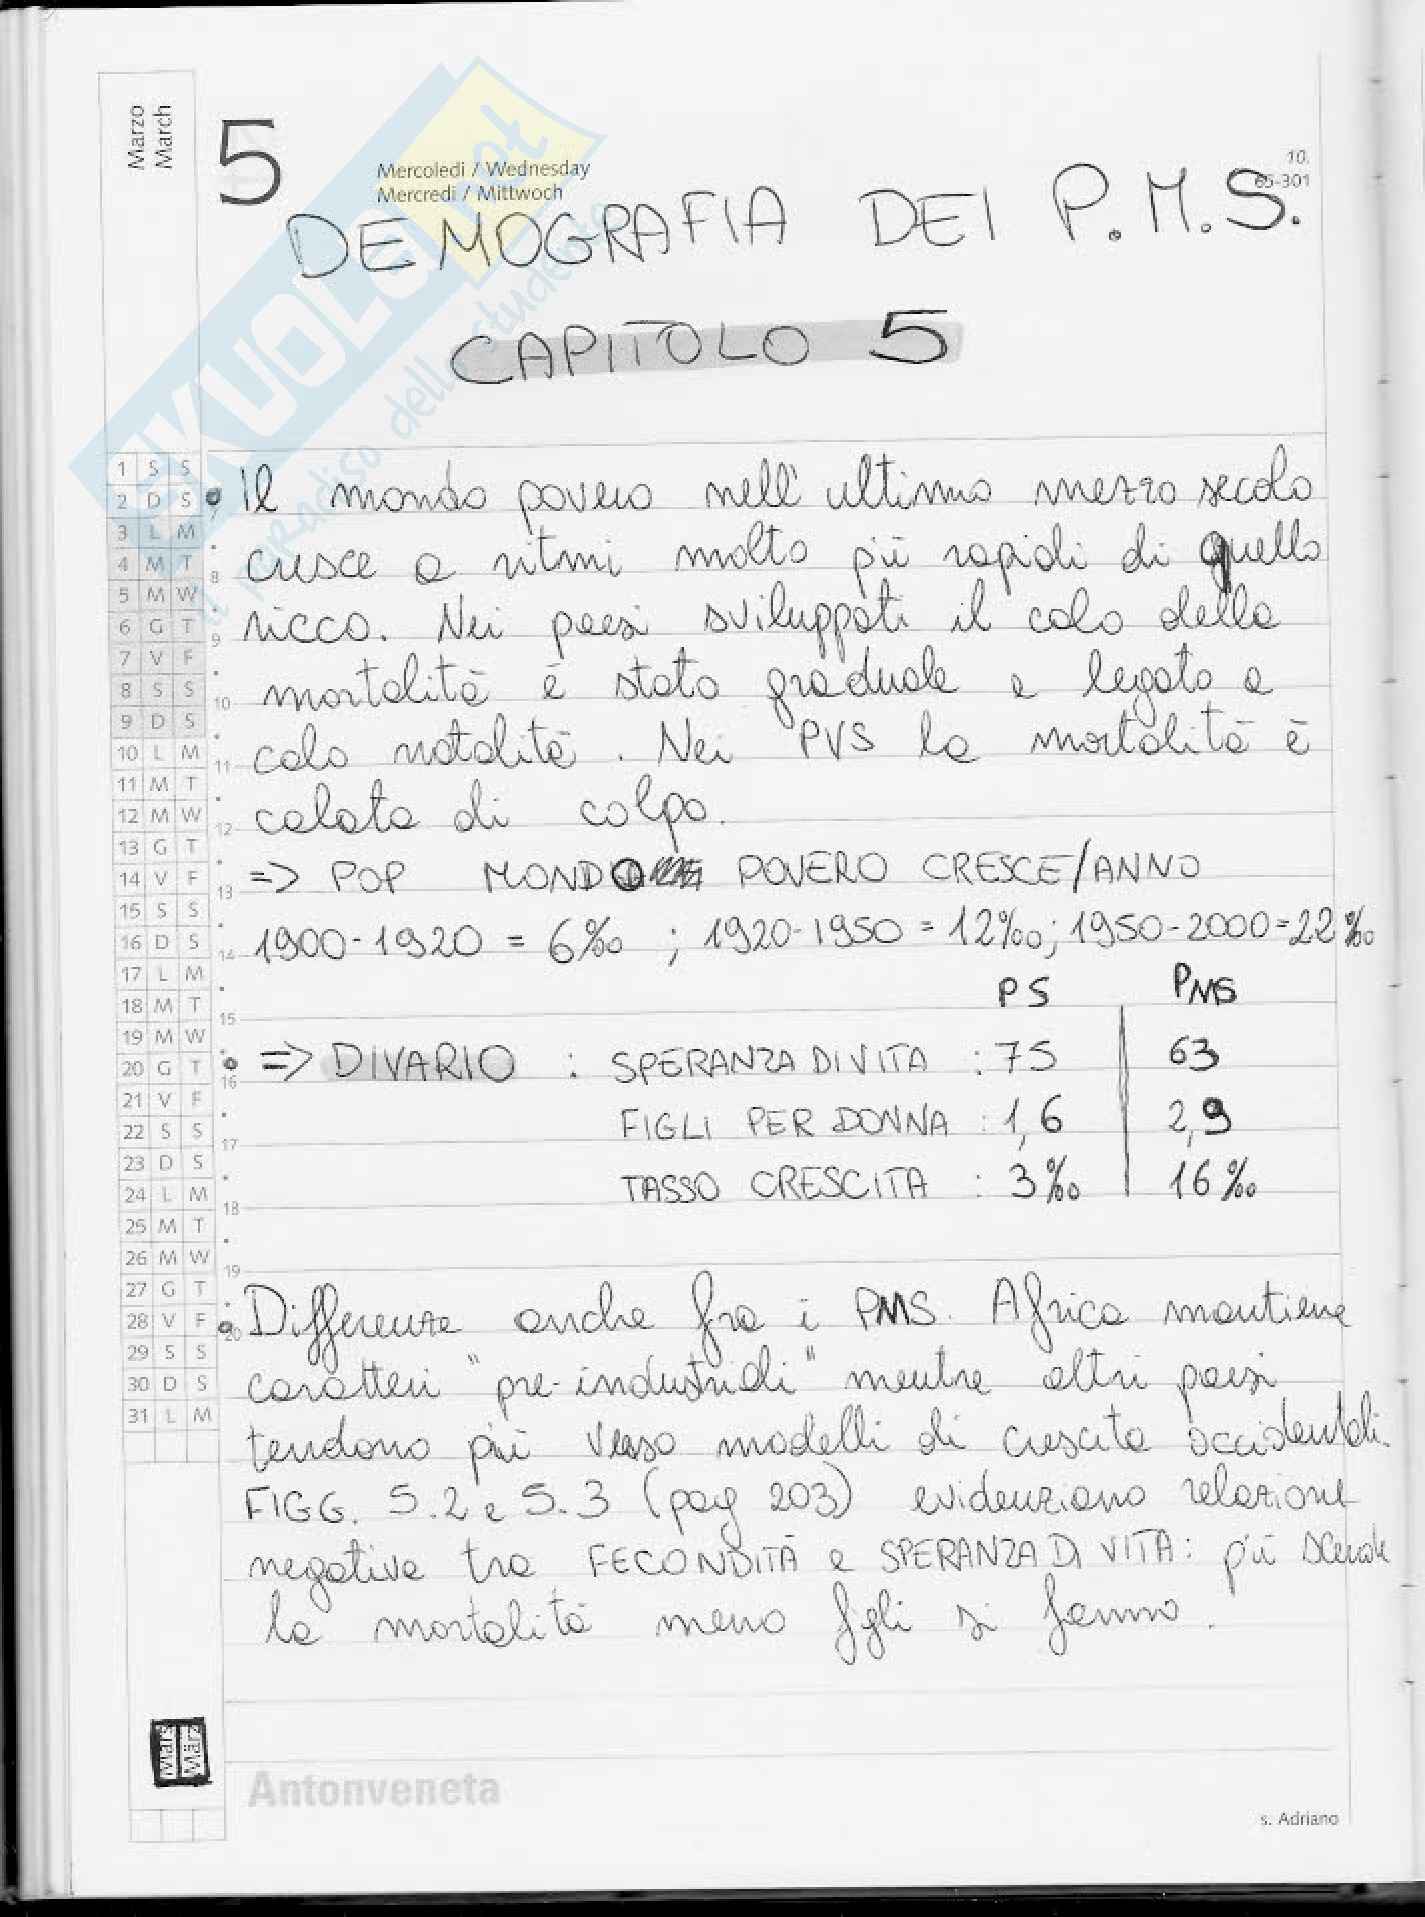 Marzo
March
5
Mercoledì / Wednesday
Mercredi / Mittwoch
10.
65-301
DEMOGRAFIA DEI P.M.S.
CAPITOLO 5
SKUOLA.net
il paradiso dello studente
1 S S
2 D S
3 L M
4 M T
5 M W
6 G T
7 V F
8 S S
9 D S
10 L M
11 M T
12 M W
13 G T
14 V F
15 S S
16 D S
17 L M
18 M T
19 M W
20 G T
21 V F
22 S S
23 D S
24 L M
25 M T
26 M W
27 G T
28 V F
29 S S
30 D S
31 L M
8
9
10
11
12
13
14
15
16
17
18
19
20
• Il mondo povero nell'ultimo mezzo secolo
cresce a ritmi molto più rapidi di quello
ricco. Nei paesi sviluppati il calo della
mortalità è stato graduale e legato a
calo natalità. Nei PVS la mortalità è
calata di colpo.
=> POP MONDO POVERO CRESCE/ANNO
1900-1920 = 6‰ ; 1920-1950 = 12‰; 1950-2000=22‰
PS PMS
• => DIVARIO : SPERANZA DI VITA : 75 63
FIGLI PER DONNA : 1,6 2,9
TASSO CRESCITA : 3‰ 16‰
• Differenze anche fra i PMS. Africa mantiene
caratteri "pre-industriali" mentre altri paesi
tendono più verso modelli di crescita occidentali.
FIGG. 5.2 e 5.3 (pag 203) evidenziano relazione
negativa tra FECONDITÀ e SPERANZA DI VITA: più scende
la mortalità meno figli si fanno.
Mars
März
Antonveneta
s. Adriano